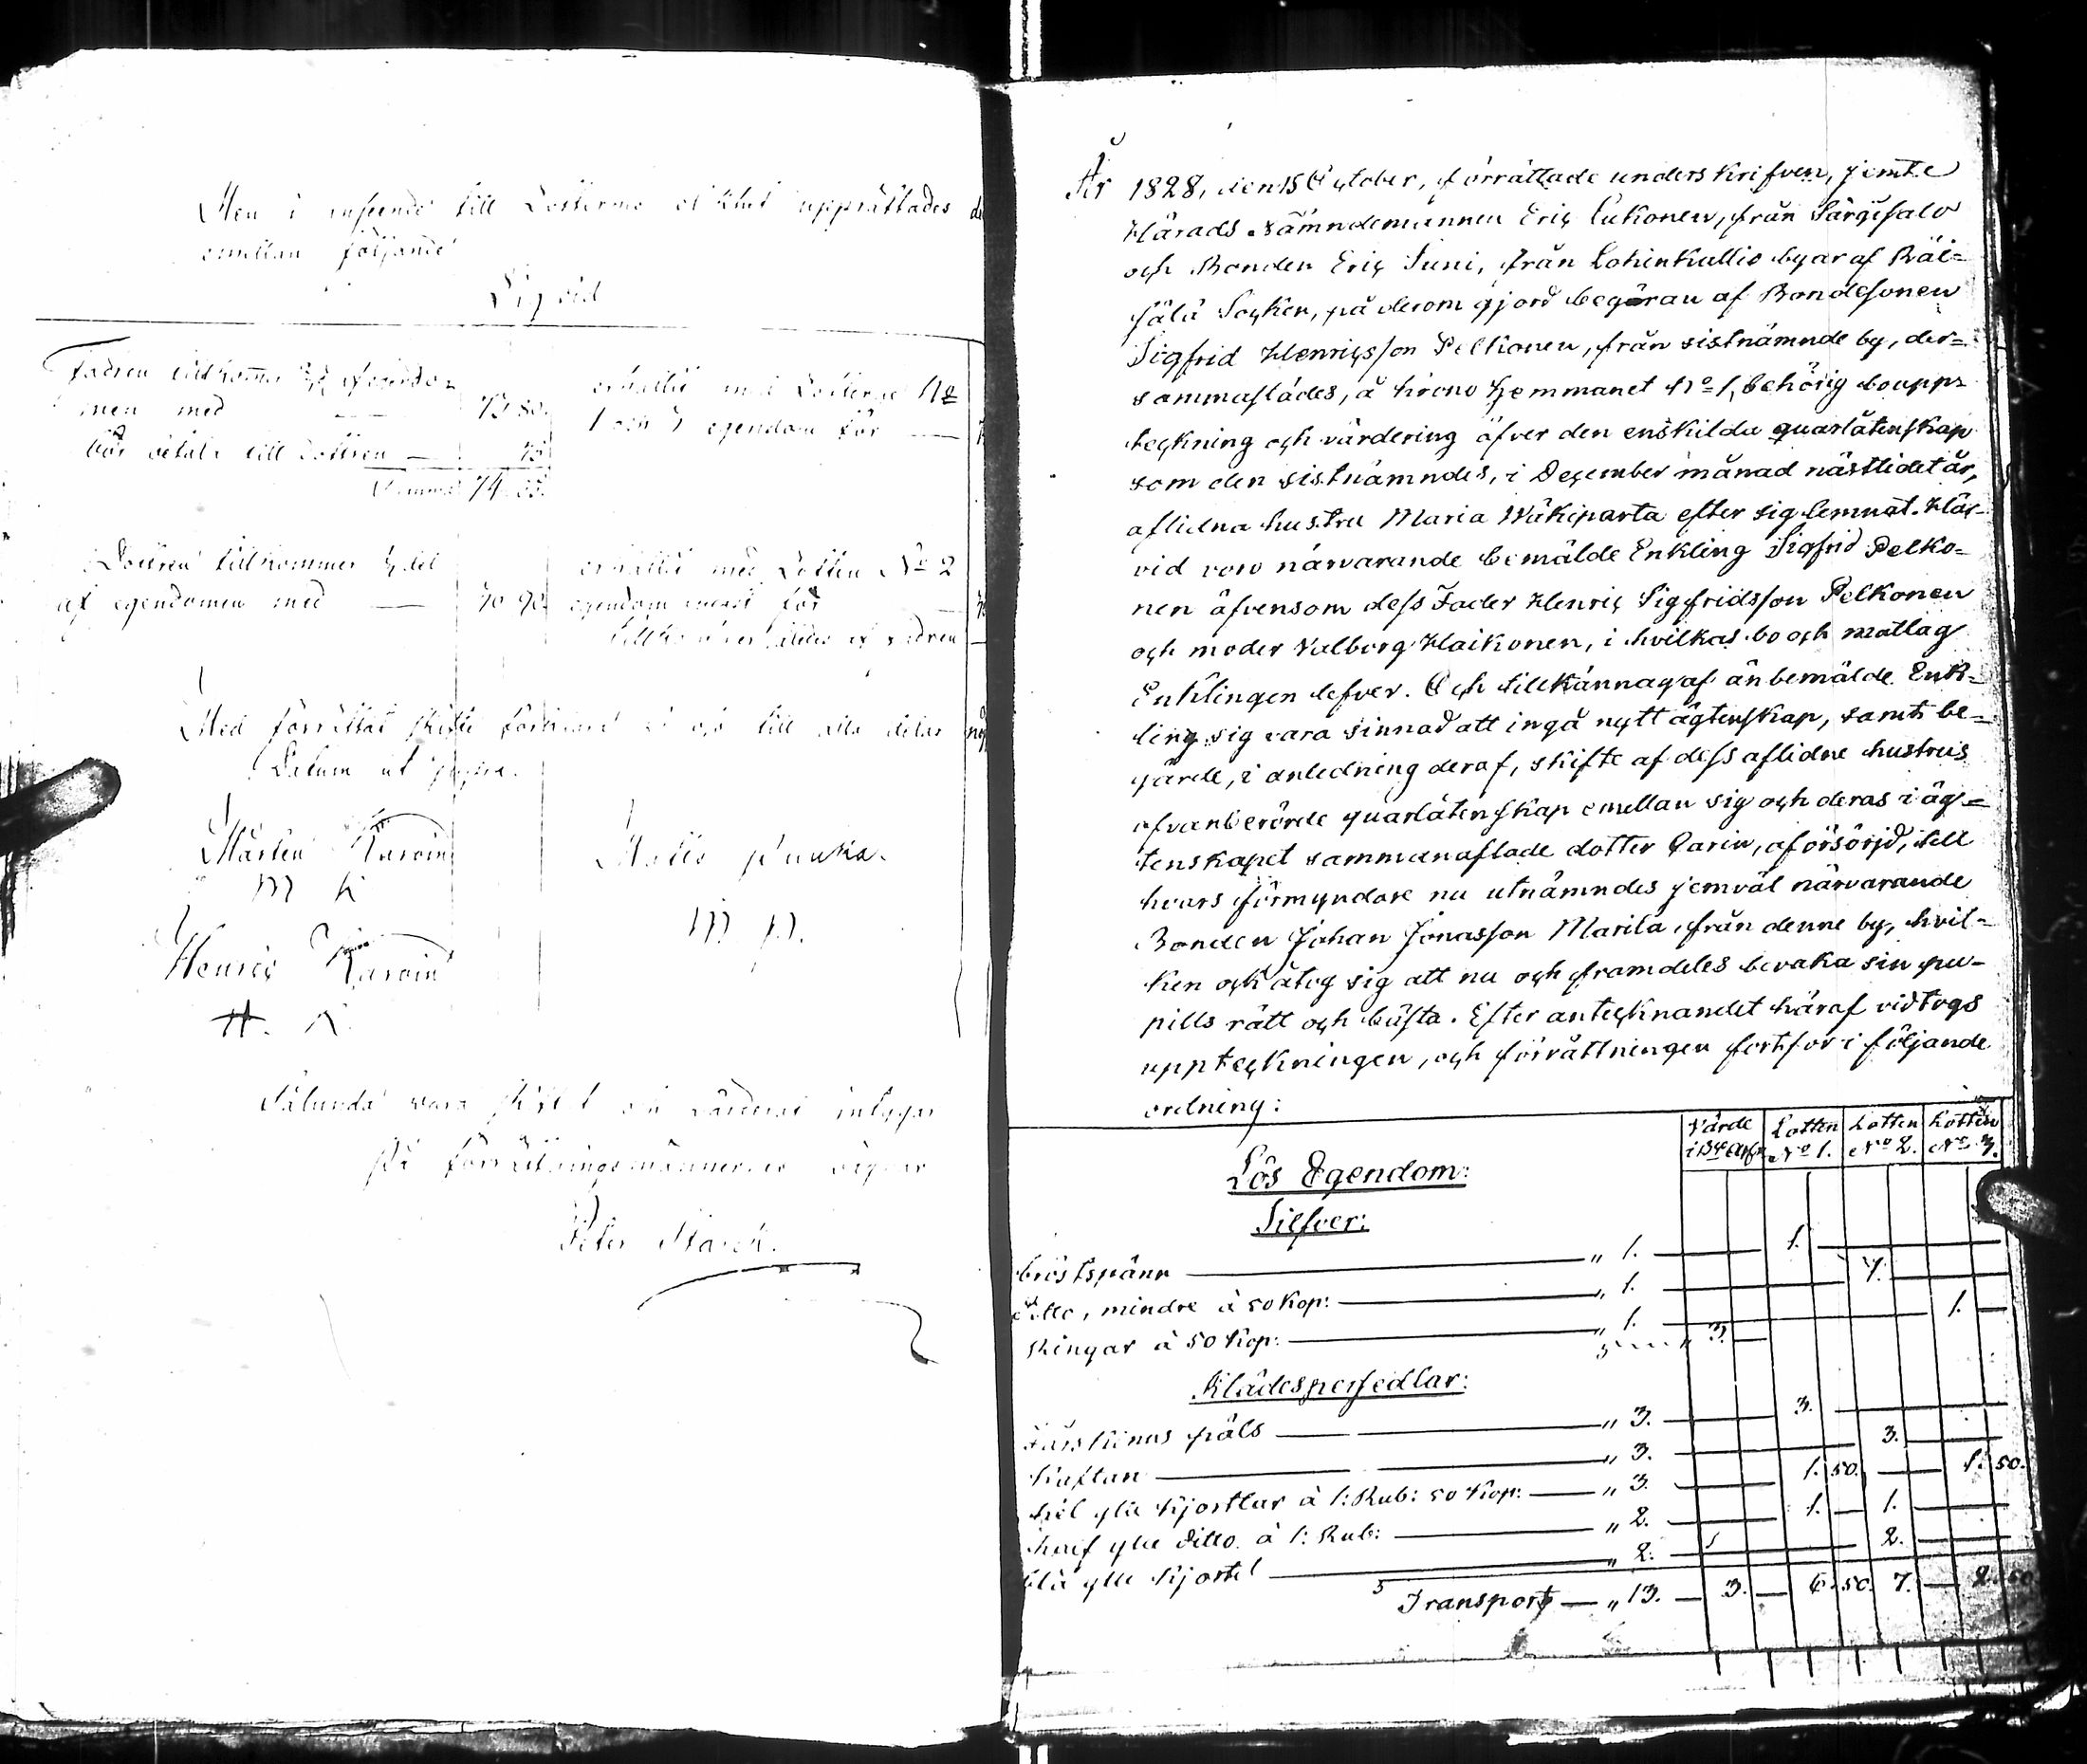 Men i anseende till Lotterne blefvet upprättades
emellan följande
Liqvid
Fadren tillkommer 2/3 af egendo-
men med — 73 80.
bör betala till Dottren —
Summa 74 55.
erhållit med Lotterne No
1 och 3 egendom för —
Dottren tillkommer 1/3 del
af egendomen med — 70 90.
erhållit med Lotten No 2
egendom värdt för —
af Fadren —
Med förrättat skifte till alla delar
Datum ut supra.
Mårten Karvin
M K
Henriç Karvin
H. K.
Matts Puuka.
M. P.
Sålunda vara skiftat och värderat intygar
På Förrättningsmännernes vägnar
Peter Starck.
År 1828, den 15 October, förrättade underskrifven, jemte
Härads Nämndemannen Eriç Cukonen, från Särgisalo
och Bonden Eriç Suni, från Lohinkallio byar af Räi-
sälä Soçken, på derom gjord begäran af Bondesonen
Sigfrid Henriçsson Pelkonen, från sistnämnde by, der-
sammastädes, å krono Hemmanet No 1, behörig boupp-
teçkning och värdering öfver den enskilda quarlåtenskap
som den sistnämndes, i December månad nästlidet år,
aflidna hustru Maria Wäkiparta efter sig lemnat. Här-
vid voro närvarande bemälde Enkling Sigfrid Pelko-
nen äfvensom dess Fader Henriç Sigfridsson Pelkonen
och moder Valborg Haikonen, i hvilkas bo och matlag
Enklingen lefver. Och tillkännagaf änbemälde Enk-
ling sig vara sinnad att ingå nytt ägtenskap, samt be-
gärde, i anledning deraf, skifte af dess aflidne hustrus
ofvanberörde quarlåtenskap emellan sig och deras i äg-
tenskapet sammanaflade dotter Carin, oförsörjd, till
hvars förmyndare nu utnämndes jemväl närvarande
Bonden Johan Jonasson Marila, från denne by, hvil-
ken och åtog sig att nu och framdeles bevaka sin pu-
pills rätt och bästa. Efter anteçknandet häraf vidtogs
uppteçkningen, och förrättningen fortfor i följande
ordning:
Värde i B:co Ass: Lotten No 1. Lotten No 2. Lotten No 3.
Lös Egendom:
Silfver:
bröstspänn — „ 1. — 1. —
ditto, mindre à 50 Kop: — „ 1. — 1. —
Ringar à 50 Kop: — „ 1. — 3. — 1. —
Klädespersedlar:
Fårskinns päls — „ 3. — 3. —
Kaftan — „ 3. — 3. —
hel ylle Kjortlar à 1: Rub: 50 Kop: — „ 3. — 1. 50. — 1. 50.
half ylle ditto à 1: Rub: — „ 2. — 1. — 1. —
blå ylle Kjortel — „ 2. — 2. —
Transport — „ 13. — 3. — 6. 50. 7. — 2. 50